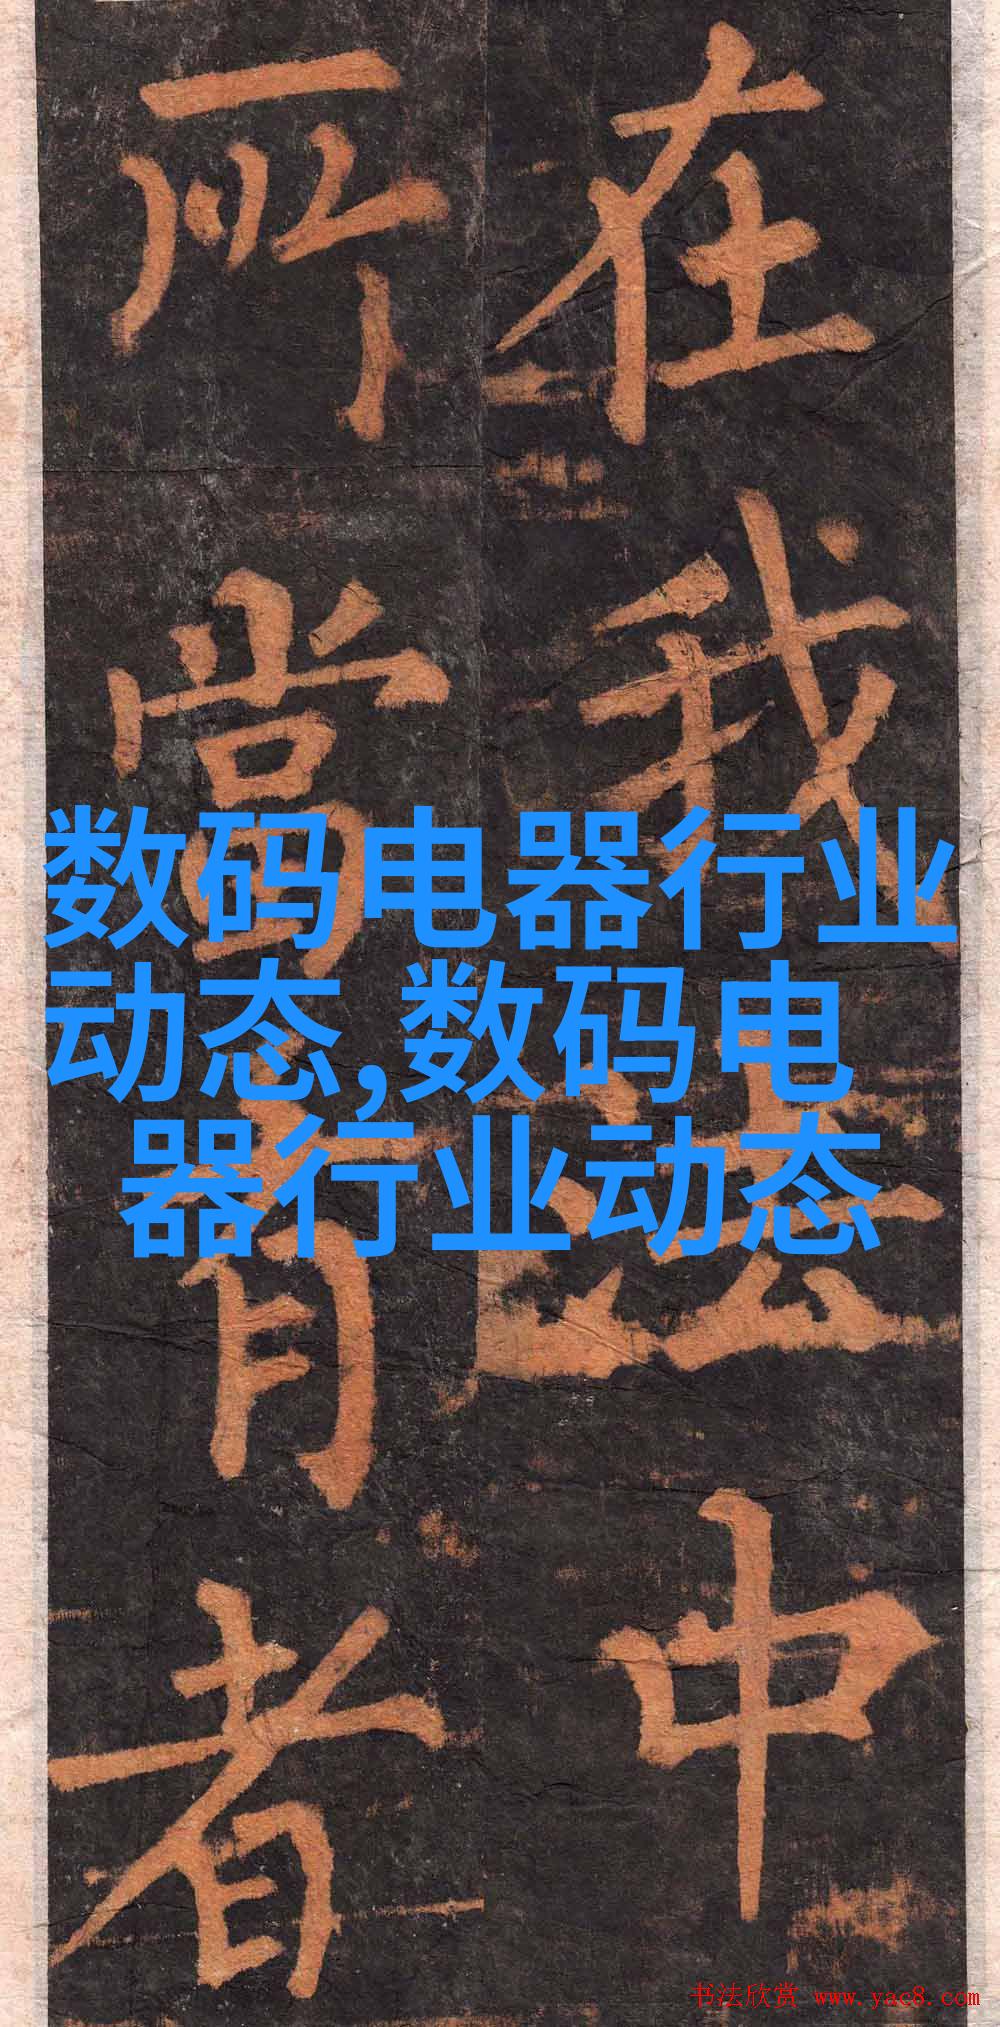 在我法中
所當有者
数码电器行业
动态,数码电
器行业动态
书法欣赏 www.yac8.com